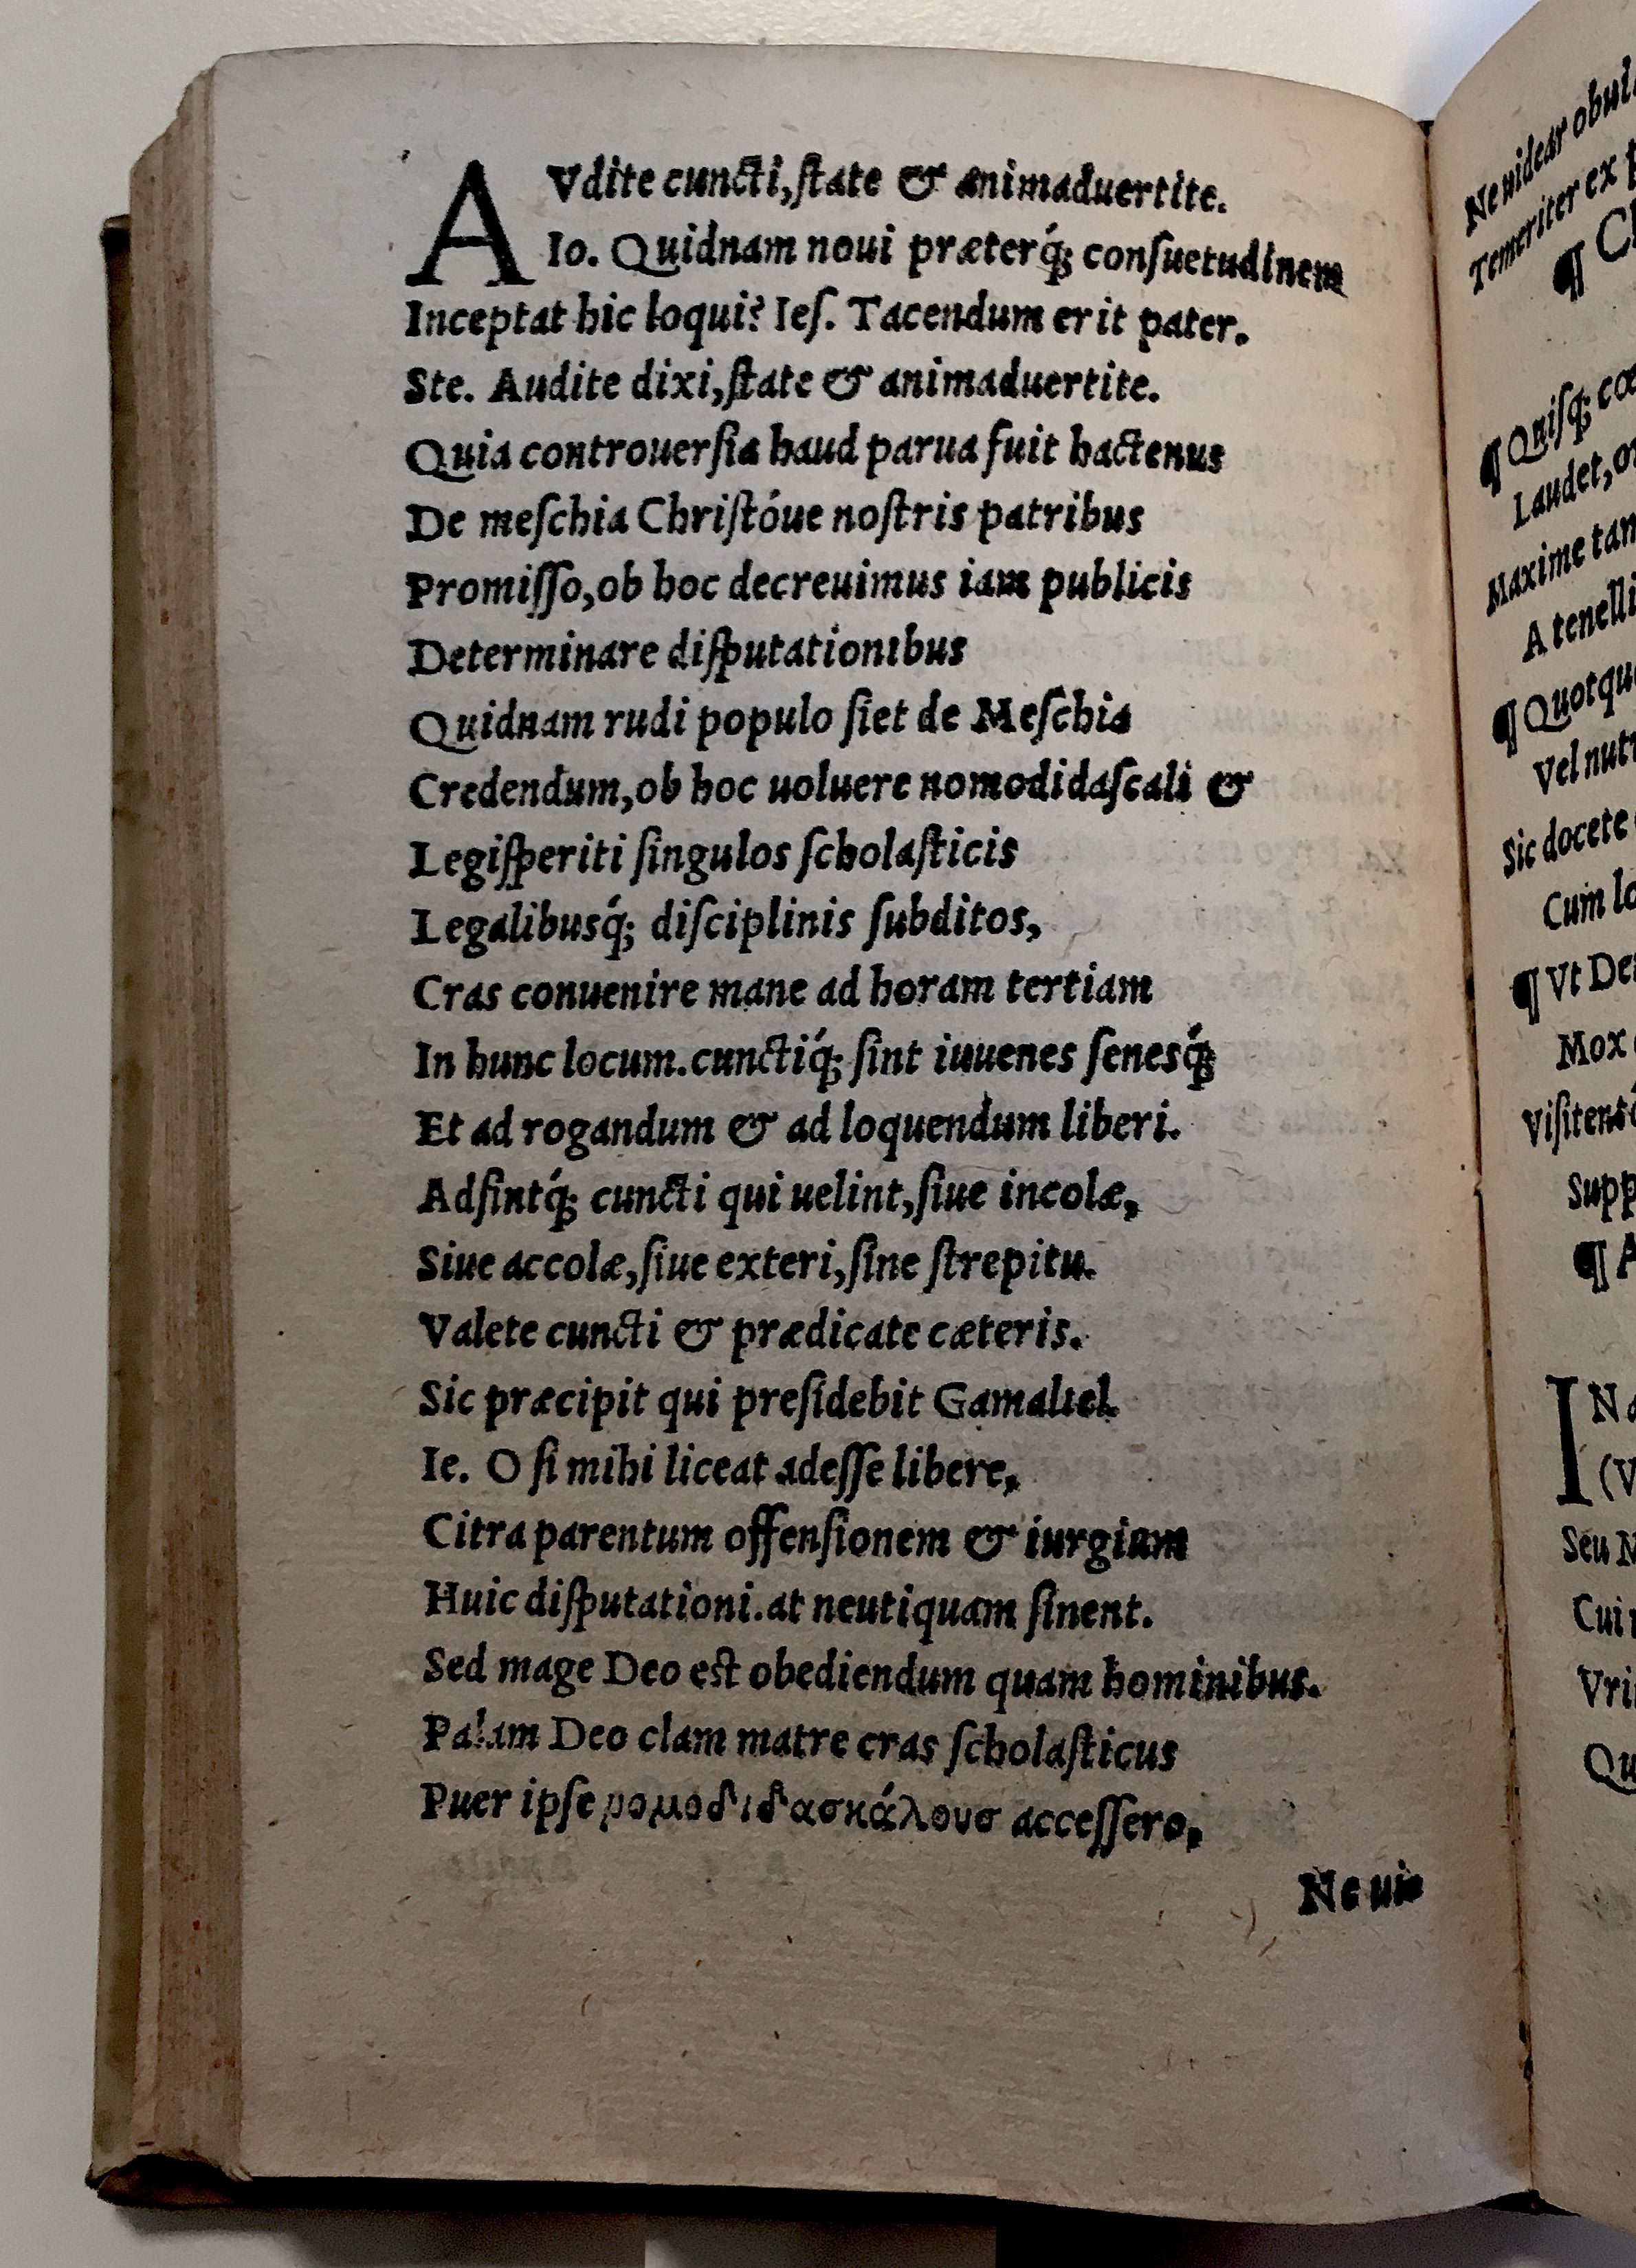 AVdite cuncti, ſtate & animaduertite.
Io. Quidnam noui præterq́; conſuetudinem
Inceptat hic loqui? Ieſ. Tacendum erit pater.
Ste. Audite dixi, ſtate & animaduertite.
Quia controuerſia haud parua fuit hactenus
De meſchia Chriſtóue noſtris patribus
Promiſſo, ob hoc decreuimus iam publicis
Determinare diſputationibus
Quidnam rudi populo ſiet de Meſchia
Credendum, ob hoc uoluere nomodidaſcali &
Legiſperiti ſingulos ſcholaſticis
Legalibusq́; diſciplinis ſubditos,
Cras conuenire mane ad horam tertiam
In hunc locum. cunctiq́; ſint iuuenes ſenesq́;
Et ad rogandum & ad loquendum liberi.
Adſintq́; cuncti qui uelint, ſiue incolæ,
Siue accolæ, ſiue exteri, ſine ſtrepitu.
Valete cuncti & prædicate cæteris.
Sic præcipit qui preſidebit Gamaliel.
Ie. O ſi mihi liceat adeſſe libere,
Citra parentum offenſionem & iurgium
Huic diſputationi. at neutiquam ſinent.
Sed mage Deo est obediendum quam hominibus.
Palam Deo clam matre cras ſcholaſticus
Puer ipſe ρομοδιδασκάλουσ acceſſero,
Ne uie
Ne uidear obui
Temeriter ex
¶ C
¶ Quiſq; cœ
Laudet, o
Maxime tam
A tenelli
¶ Quotqu
Vel nutr
Sic docete
Cum lo
¶ Vt De
Mox
Viſitent
Supp
¶ A
IN
(V
Seu N
Cui
Vri
Qu